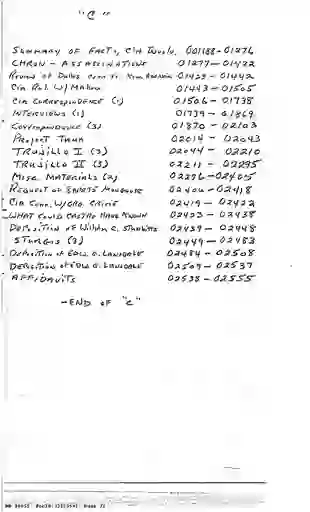 "C"
SUMMARY OF FACTS, CIA Involv. 001188-01276
CHRON - ASSASSINATIONS 01277-01422
Review of Dulles 01423-01442
CIA Rel. W/ MAHEU 01443-01505
CIA CORRESPONDENCE (1) 01506-01738
INTERVIEWS (1) 01739-01869
CORRESPONDENCE (3) 01870-02103
PROJECT 02014-02043
TRUJILLO I (3) 02044-02210
TRUJILLO II (3) 02211-02295
MISC MATERIALS (2) 02296-02405
REQUEST OF MONGOOSE 02406-02418
CIA CONN. W/ORG. CRIME 02419-02422
WHAT COULD CASTRO HAVE KNOWN 02423-02438
DEPOSITION OF William C. STURGIS 02439-02448
STURGIS (3) 02449-02483
DEPOSITION OF EDW. G. LANSDALE 02484-02508
DEPOSITION OF EDW. G. LANSDALE 02509-02537
AFFIDAVITS 02538-02555
-END OF "C"